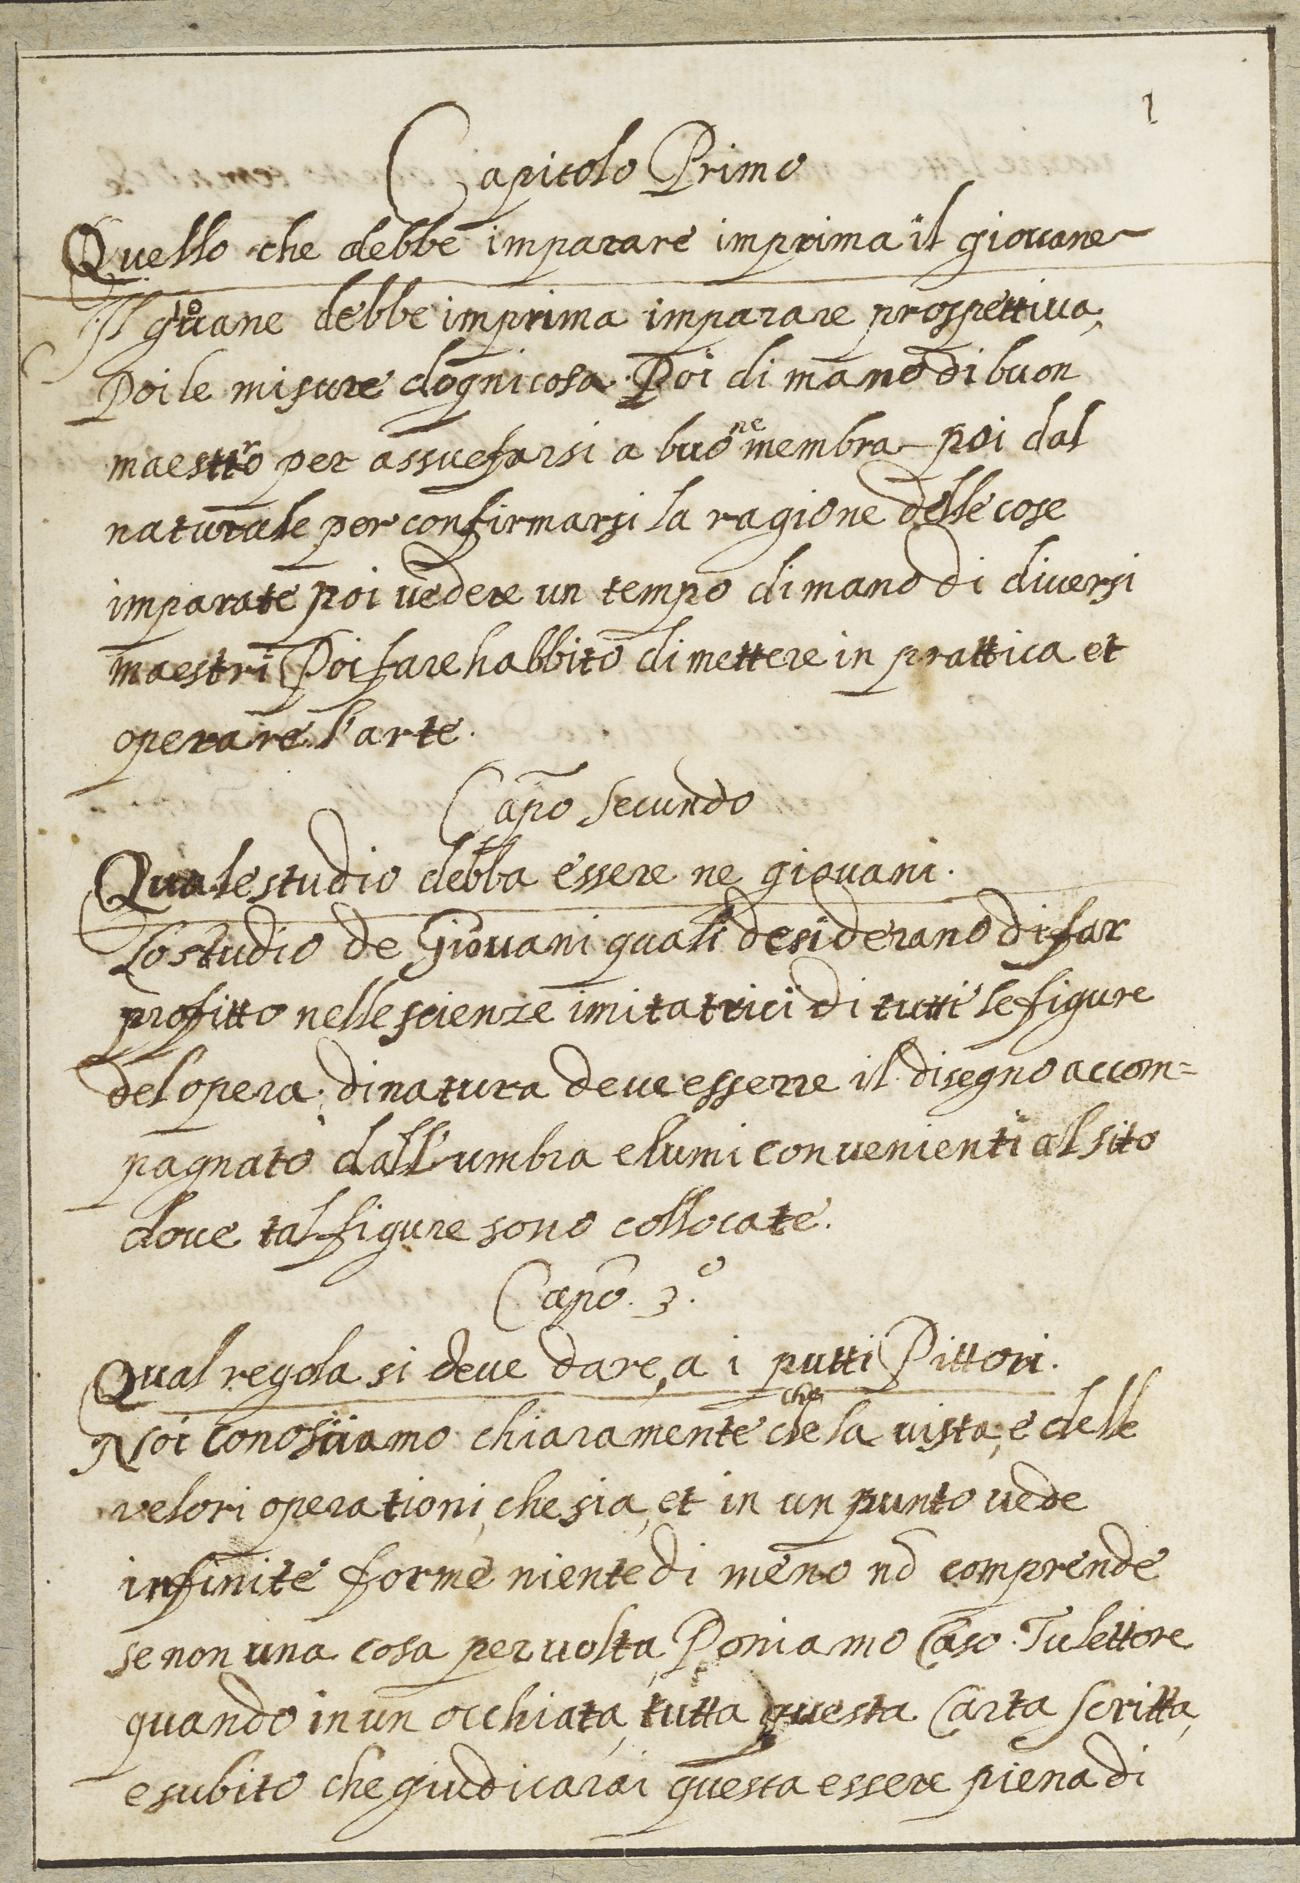 1
Capitolo Primo
Quello che debbe imparare imprima il giouane
Il giouane debbe imprima imparare prospettiua,
Poi le misure d'ogni cosa. Poi di mano di buon
maestro per assuefarsi a buone membra poi dal
naturale per confirmarsi la ragione delle cose
imparate poi vedere un tempo di mano di diuersi
maestri Poi fare habbito di mettere in prattica et
operare l'arte.
Capo secundo
Quale studio debba essere ne giouani.
Lo studio de Giouani quali desiderano di far
profitto nelle scienze imitatrici di tutti le figure
del opera, di natura deue esserre il disegno accom=
pagnato dall'umbra e lumi conuenienti al sito
doue tal figure sono collocate.
Capo. 3.º
Qual regola si deue dare, a i putti Pittori.
Noi conosciamo chiaramente che la uista, e delle
velori operationi, che sia, et in un punto uede
infinite forme niente di meno nō comprende
se non una cosa per uolta, Poniamo Caso. Tu lettore
quando in un occhiata, tutta questa Carta scritta,
e subito che giudicarai questa essere piena di